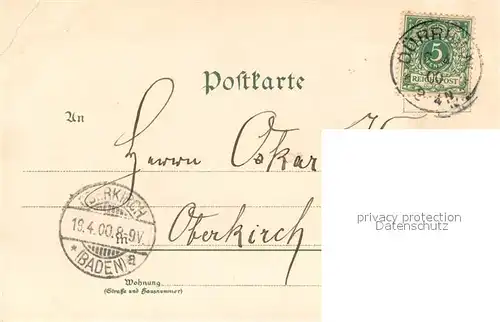 5
REICHSPOST
DÜRRH
00
Postkarte
An
Herrn Oskar
OBERKIRCH
19.4.00.8-9V.
(BADEN)
Oberkirch
privacy protection
Datenschutz
Wohnung.
(Straße und Hausnummer)